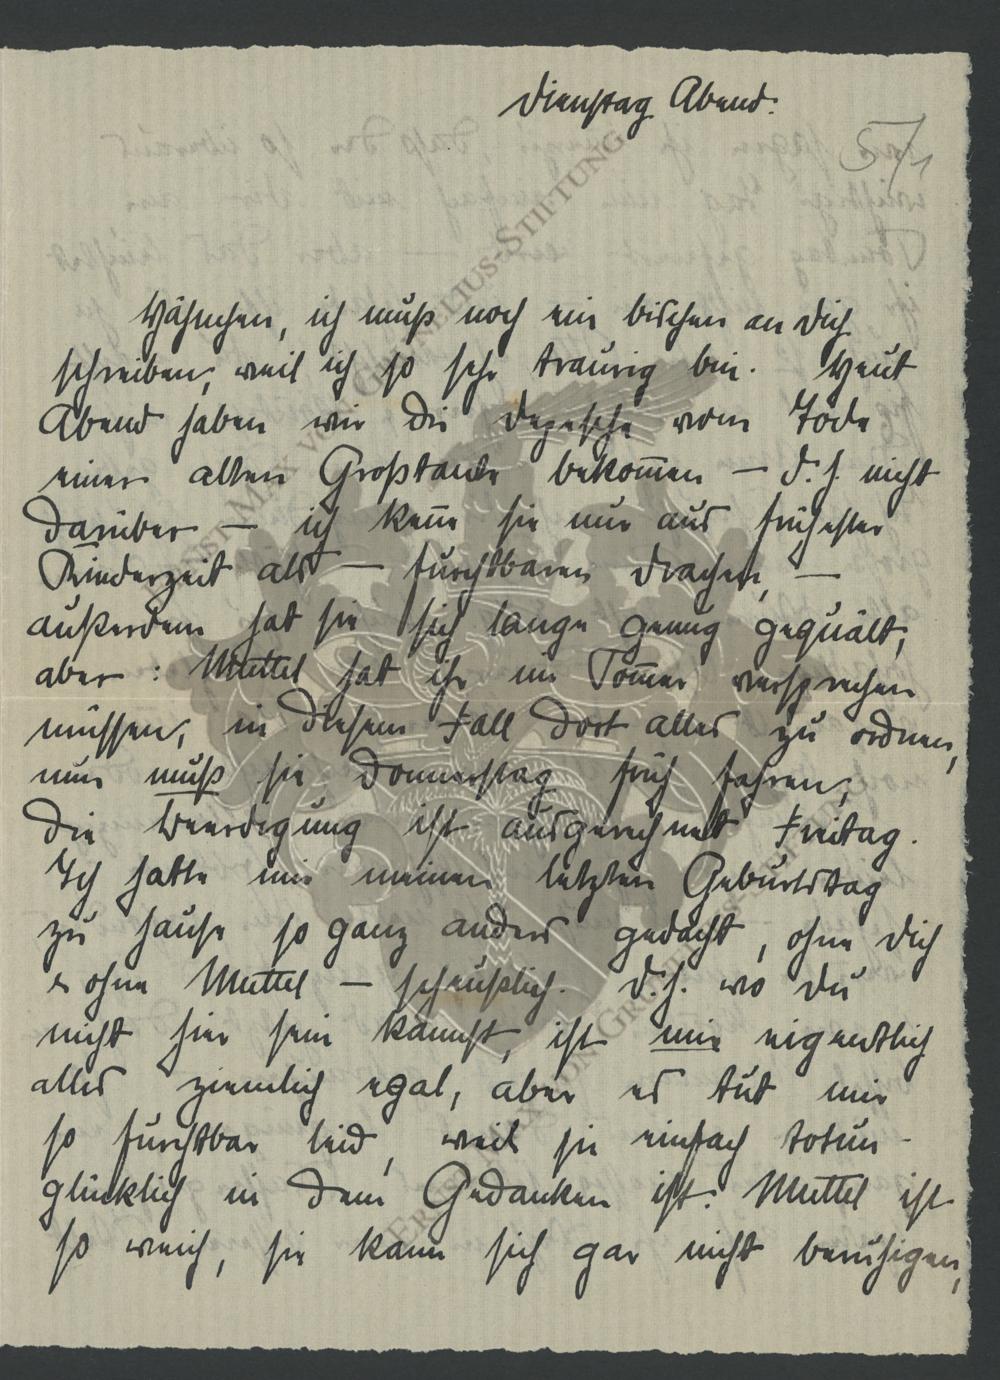 Dienstag Abend.
57/1
Hähnchen, ich muß noch ein bischen an Dich
schreiben, weil ich so sehr traurig bin. Heut
Abend haben wir die Depesche vom Tode
einer alten Großtante bekom̅en — d. h. nicht
darüber — ich ken̅e sie nur aus frühester
Kinderzeit als — furchtbaren Drachen, —
außerdem hat sie sich lange genug gequält,
aber : Muttel hat ihr im Som̅er versprechen
müssen, in diesem Fall dort alles zu ordnen,
nun muß sie Donnerstag früh fahren,
die Beerdigung ist ausgerechnet Freitag.
Ich hatte mir meinen letzten Geburtstag
zu hause so ganz anders gedacht, ohne Dich
& ohne Muttel — scheußlich. D. h. wo Du
nicht hier sein kannst, ist mir eigentlich
alles ziemlich egal, aber es tut mir
so furchtbar leid, weil sie einfach totun-
glücklich in dem Gedanken ist. Muttel ist
so weich, sie kann sich gar nicht beruhigen,